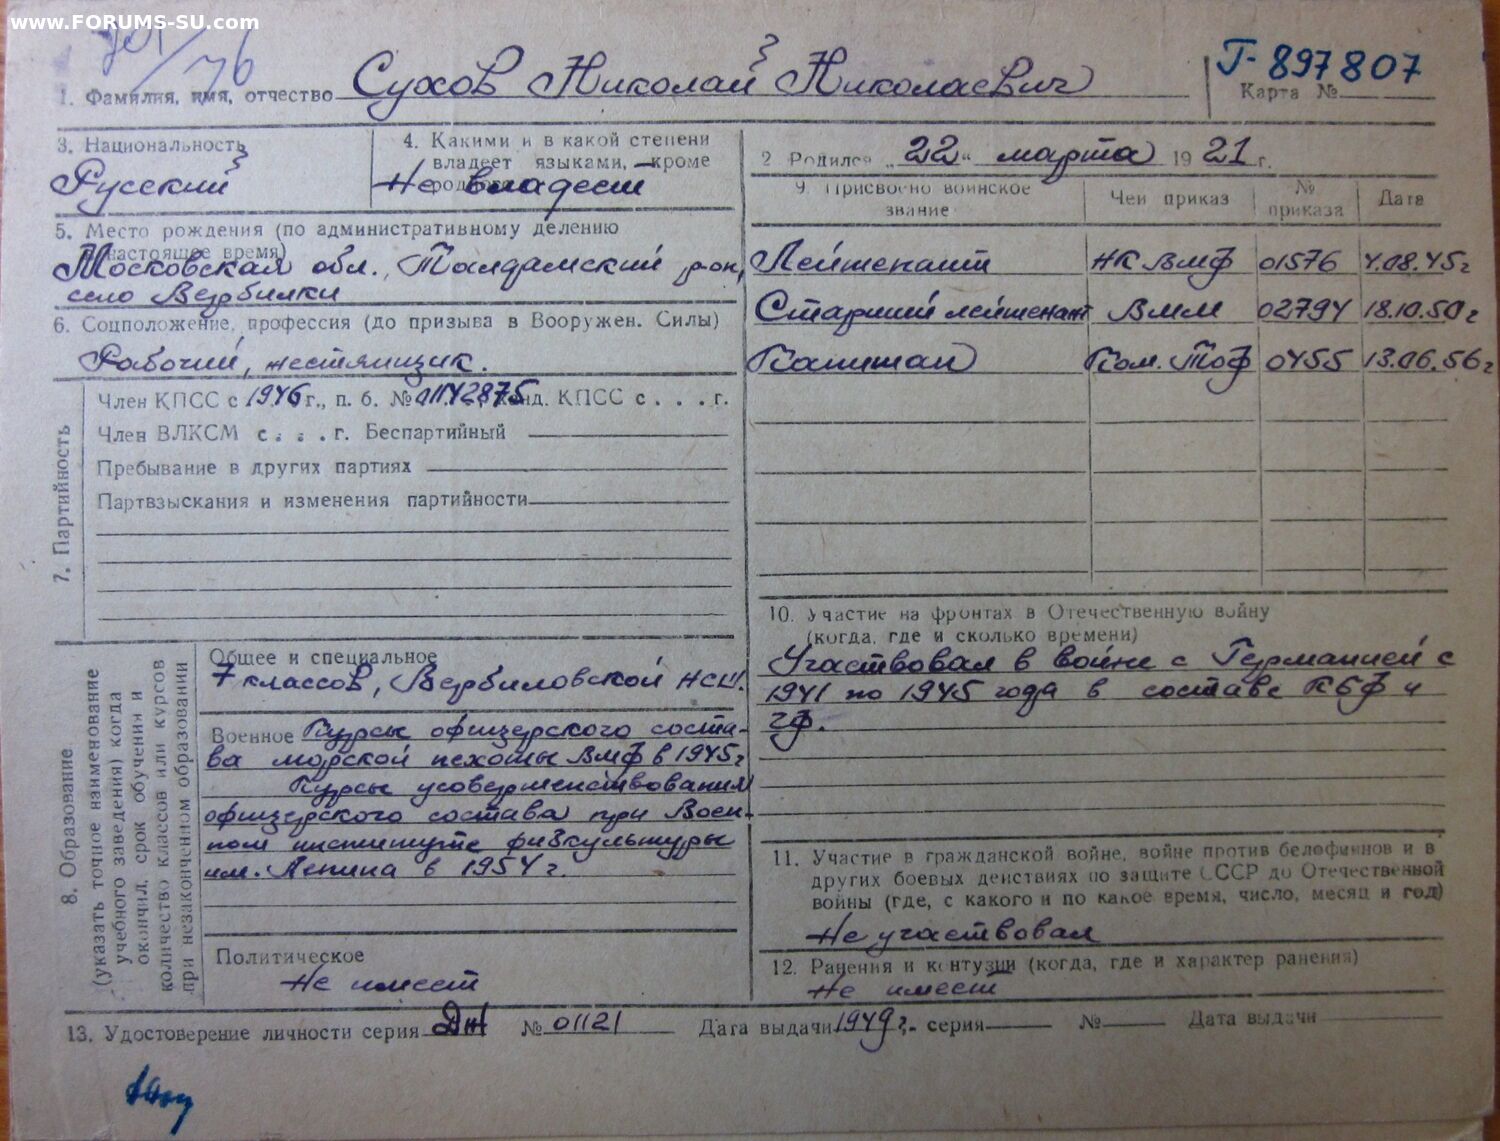 www.FORUMS-SU.com
76
1. Фамилия, имя, отчество Сухов Николай Николаевич
Г-897807
Карта №
3. Национальность
Русский
4. Какими и в какой степени
владеет языками, кроме
Не владеет
2. Родился „22“ марта 1921 г.
5. Место рождения (по административному делению
настоящее время)
Московская обл., Талдомский р-он,
село Вербилки
6. Соцположение, профессия (до призыва в Вооружен. Силы)
Рабочий, жестянщик.
9. Присвоено воинское звание
Чей приказ
№ приказа
Дата
Лейтенант НК ВМФ 01576 4.08.45г
Старший лейтенант ВММ 02794 18.10.50г
Капитан Ком. ТОФ 0455 13.06.56г
7. Партийность
Член КПСС с 1946 г., п. б. № 01142875, канд. КПСС с . . . г.
Член ВЛКСМ с . . . г. Беспартийный
Пребывание в других партиях
Партвзыскания и изменения партийности
8. Образование
(указать точное наименование
учебного заведения) когда
окончил, срок обучения и
количество классов или курсов
при незаконченном образовании
Общее и специальное
7 классов, Вербиловской НСШ.
Военное Курсы офицерского соста-
ва морской пехоты ВМФ в 1945г
Курсы усовершенствования
офицерского состава при Воен-
ном институте физкультуры
им. Ленина в 1954 г.
Политическое
Не имеет
10. Участие на фронтах в Отечественную войну
(когда, где и сколько времени)
Участвовал в войне с Германией с
1941 по 1945 года в составе КБФ и
ЧФ.
11. Участие в гражданской войне, войне против белофиннов и в
других боевых действиях по защите СССР до Отечественной
войны (где, с какого и по какое время, число, месяц и год)
Не участвовал
12. Ранения и контузии (когда, где и характер ранения)
Не имеет
13. Удостоверение личности серия ДН № 01121 Дата выдачи 1949г. серия № Дата выдачи